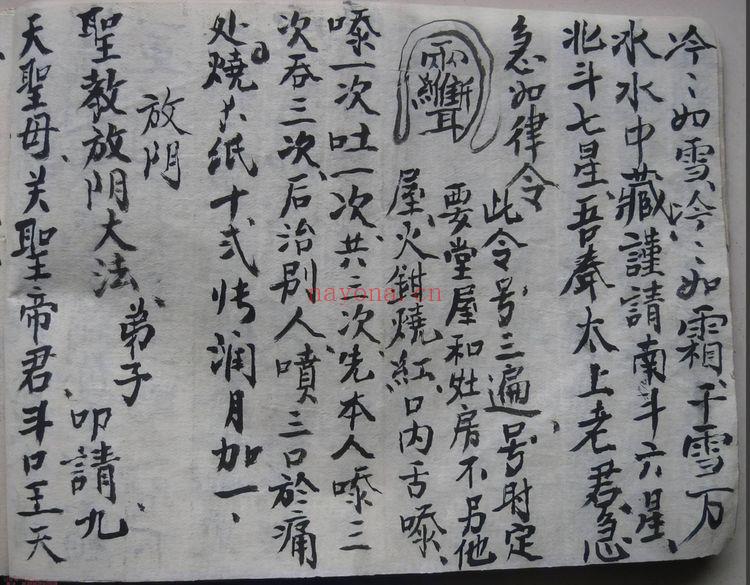 冷〻如雪、冷〻如霜、千雪万
氷水中藏謹請南斗六星、
北斗七星、吾奉太上老君、急
急如律令
此令号三遍号时定
要堂屋和灶房不另他
屋、火钳燒紅、口内舌嚓、
嚓一次吐一次、共三次先本人嚓三
次吞三次、后治别人噴三口於痛
处、燒大纸十弍张潤月加一、
放阴
聖教放阴大法、弟子叩請九
天聖母、关聖帝君斗口王天
nayona.cn